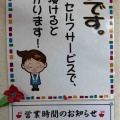 です。
セルフサービスで、
頂けると
かります！
営業時間のお知らせ